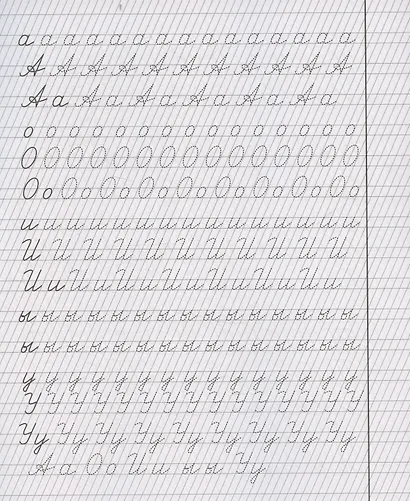 а а а а а а а а а а а а а а а
А А А А А А А А А А А
Аа Аа Аа Аа Аа Аа
о о о о о о о о о о о о о о о о
О О О О О О О О О О О О О О О
Оо Оо Оо Оо Оо Оо Оо Оо Оо
и и и и и и и и и и и и и и и
И И И И И И И И И И И
Ии Ии Ии Ии Ии Ии Ии
ы ы ы ы ы ы ы ы ы ы ы ы ы ы ы
ы ы ы ы ы ы ы ы ы ы ы ы ы ы ы
у у у у у у у у у у у у у у у
У У У У У У У У У У У У У У У
Уу Уу Уу Уу Уу Уу Уу Уу Уу
Аа Оо Ии ы ы Уу